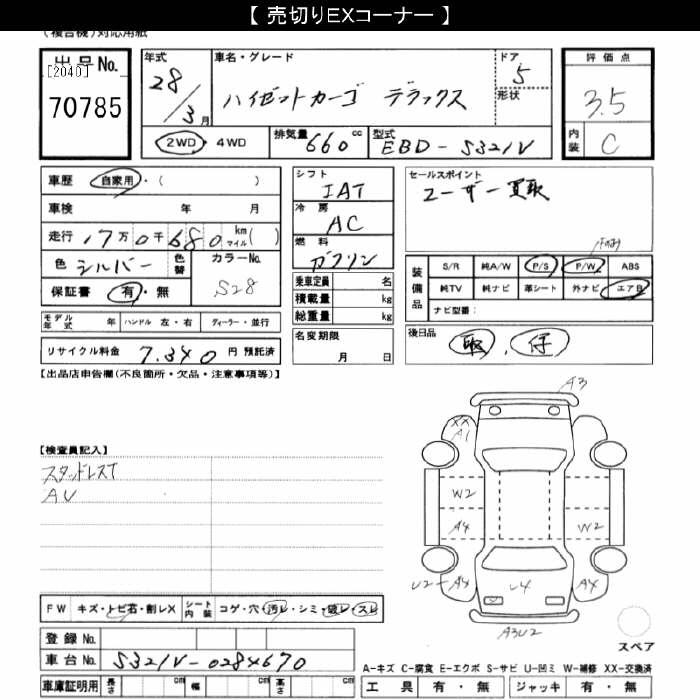 【 売切りEXコーナー 】
(複合機)対応用紙
出品No.
[2040]
70785
年式 28/3月
車名・グレード
ハイゼットカーゴ デラックス
ドア 5
形状
2WD・4WD
排気量 660 cc
型式 EBD-S321V
評価点
3.5
内装 C
車歴 自家用・( )
車検 年 月
走行 17万0千680 km マイル( )
色 シルバー 色替
カラーNo. S28
保証書 有・無
モデル年式 年 ハンドル 左・右 ディーラー・並行
リサイクル料金 7.340 円 預託済
シフト
IAT
冷房
AC
燃料
ガソリン
乗車定員 名
積載量 kg
総重量 kg
名変期限
月 日
セールスポイント
ユーザー買取
装備品
S/R 純A/W P/S P/W ABS
純TV 純ナビ 革シート 外ナビ エアB
ナビ型番:
後日品
取 . 仔
【出品店申告欄(不良箇所・欠品・注意事項等)】
【検査員記入】
スタッドレスT
AU
A3
XX
A1
W2
A4
W2
U2-A4
U4
A4
A3U2
スペア
FW キズ・トビ石・割レX
シート内装 コゲ・穴・汚レ・シミ・破レ・スレ
登録No.
車台No. S321V-0284670
車庫証明用 長さ cm 幅 cm 高さ cm
A-キズ C-腐食 E-エクボ S-サビ U-凹ミ W-補修 XX-交換済
工具 有・無 ジャッキ 有・無